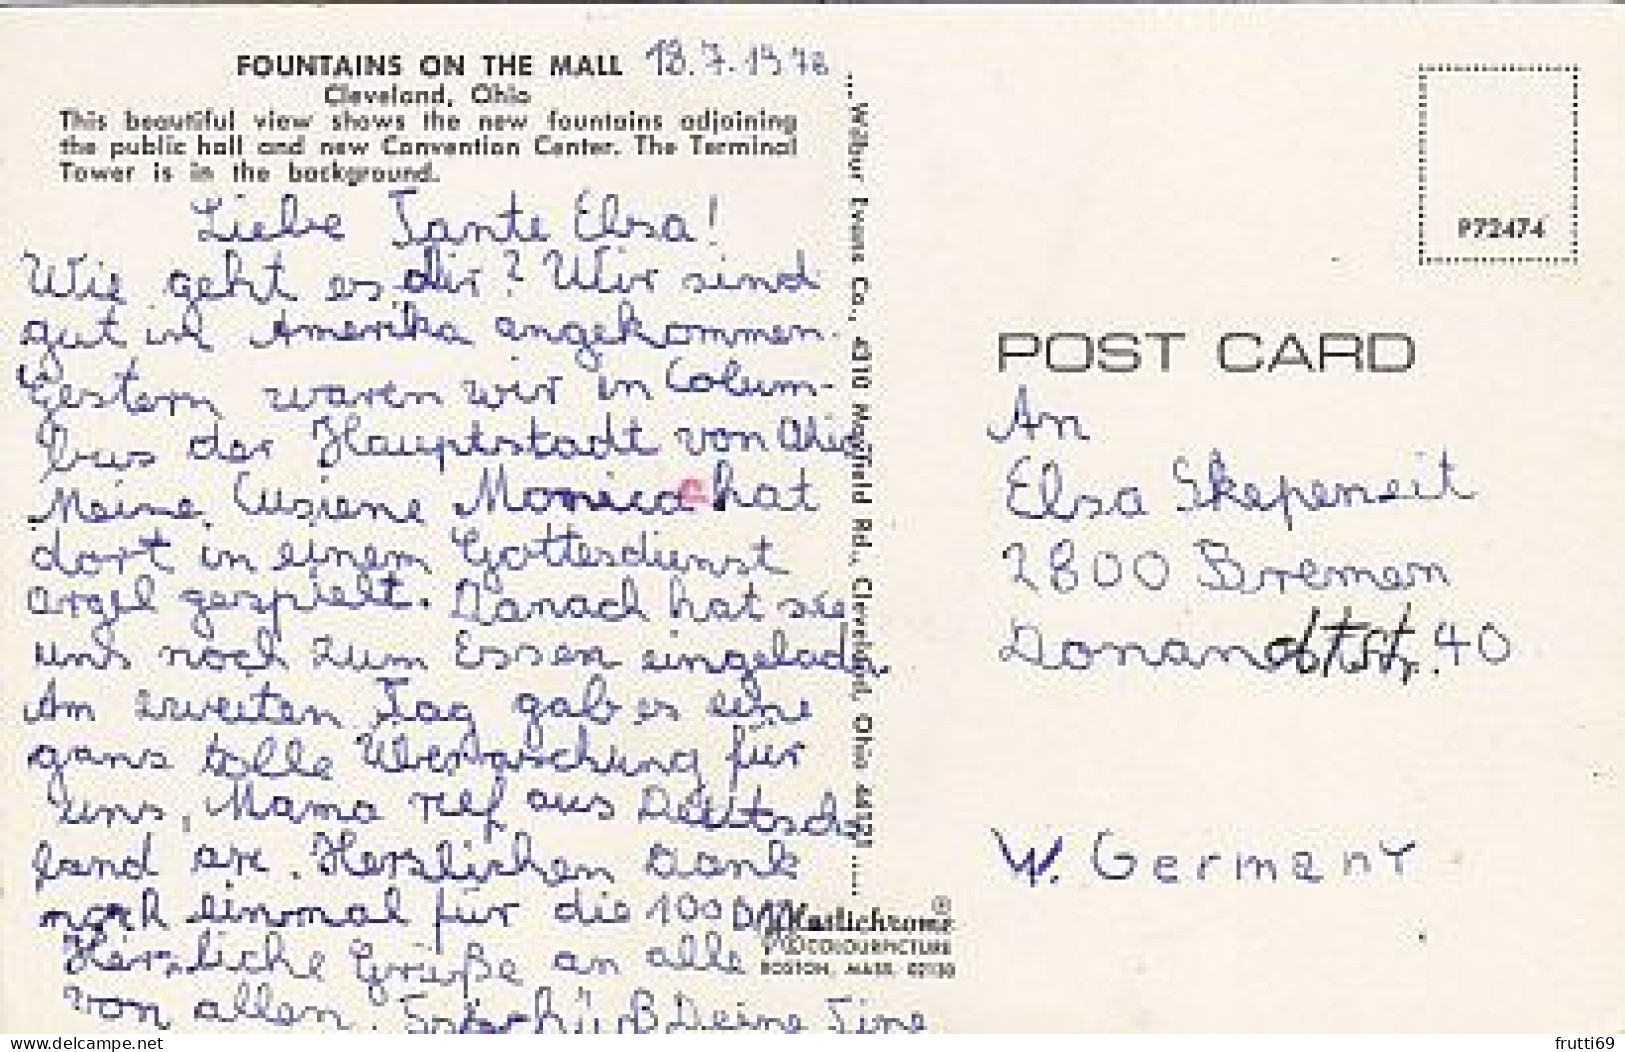 FOUNTAINS ON THE MALL 18.7.1978
Cleveland, Ohio
This beautiful view shows the new fountains adjoining
the public hall and new Convention Center. The Terminal
Tower is in the background.
Liebe Tante Elsa!
Wie geht es dir? Wir sind
gut in Amerika angekommen.
Gestern waren wir in Colum-
bus der Hauptstadt von Ohio.
Meine Cusiene Monica hat
dort in einem Gottesdienst
Orgel gespielt. Danach hat sie
uns noch zum Essen eingeladen.
Am zweiten Tag gab es eine
ganz tolle Überraschung für
uns, Mama rief aus Deutsch
land an. Herzlichen Dank
noch einmal für die 100 DM
Herzliche Grüße an alle
von allen. Deine Tine
Wilbur Evans Co., 4310 Mayfield Rd., Cleveland, Ohio 44121
Plastichrome ®
COLOURPICTURE
BOSTON, MASS. 02130
P72474
POST CARD
An
Elsa Skepeneit
2800 Bremen
40
W. Germany
www.delcampe.net
frutti69